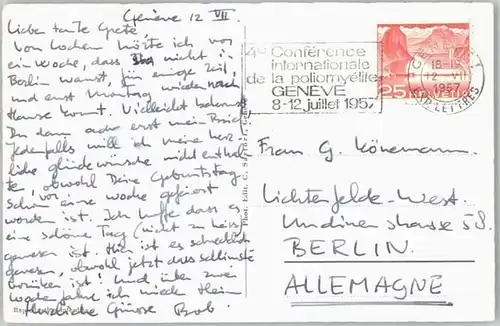 Genève 12 VII
Liebe Tante Grete
Von Jochen hörte ich vor
ein Woche, dass Du nicht in
Berlin warst, für einige Zeit,
und erst Montag wieder nach
Hause kommt. Vielleicht bekommst
Du dann auch erst mein Brief.
Jedenfalls will ich meine herz-
liche glückwünsche nicht enthal-
te, obwohl Deine Geburtstag
schon vor eine woche gefeiert
worden ist. Ich hoffe dass es
eine schöne Tag (nicht zu heiss)
gewesen ist. Hier ist es schrecklich
gewesen, obwohl jetzt das schlimmste
vorüber ist! Und über zwei
woche fahre ich wieder Heim
Herzliche Grüsse Bob
4e Conférence
internationale
de la poliomyélite
GENÈVE
8-12 juillet 1957
18-19
12 VII
1957
LETTRES
25
HELVETIA
Frau G. Könemann.
Lichterfelde-West.
Undinenstrasse 58.
BERLIN.
ALLEMAGNE